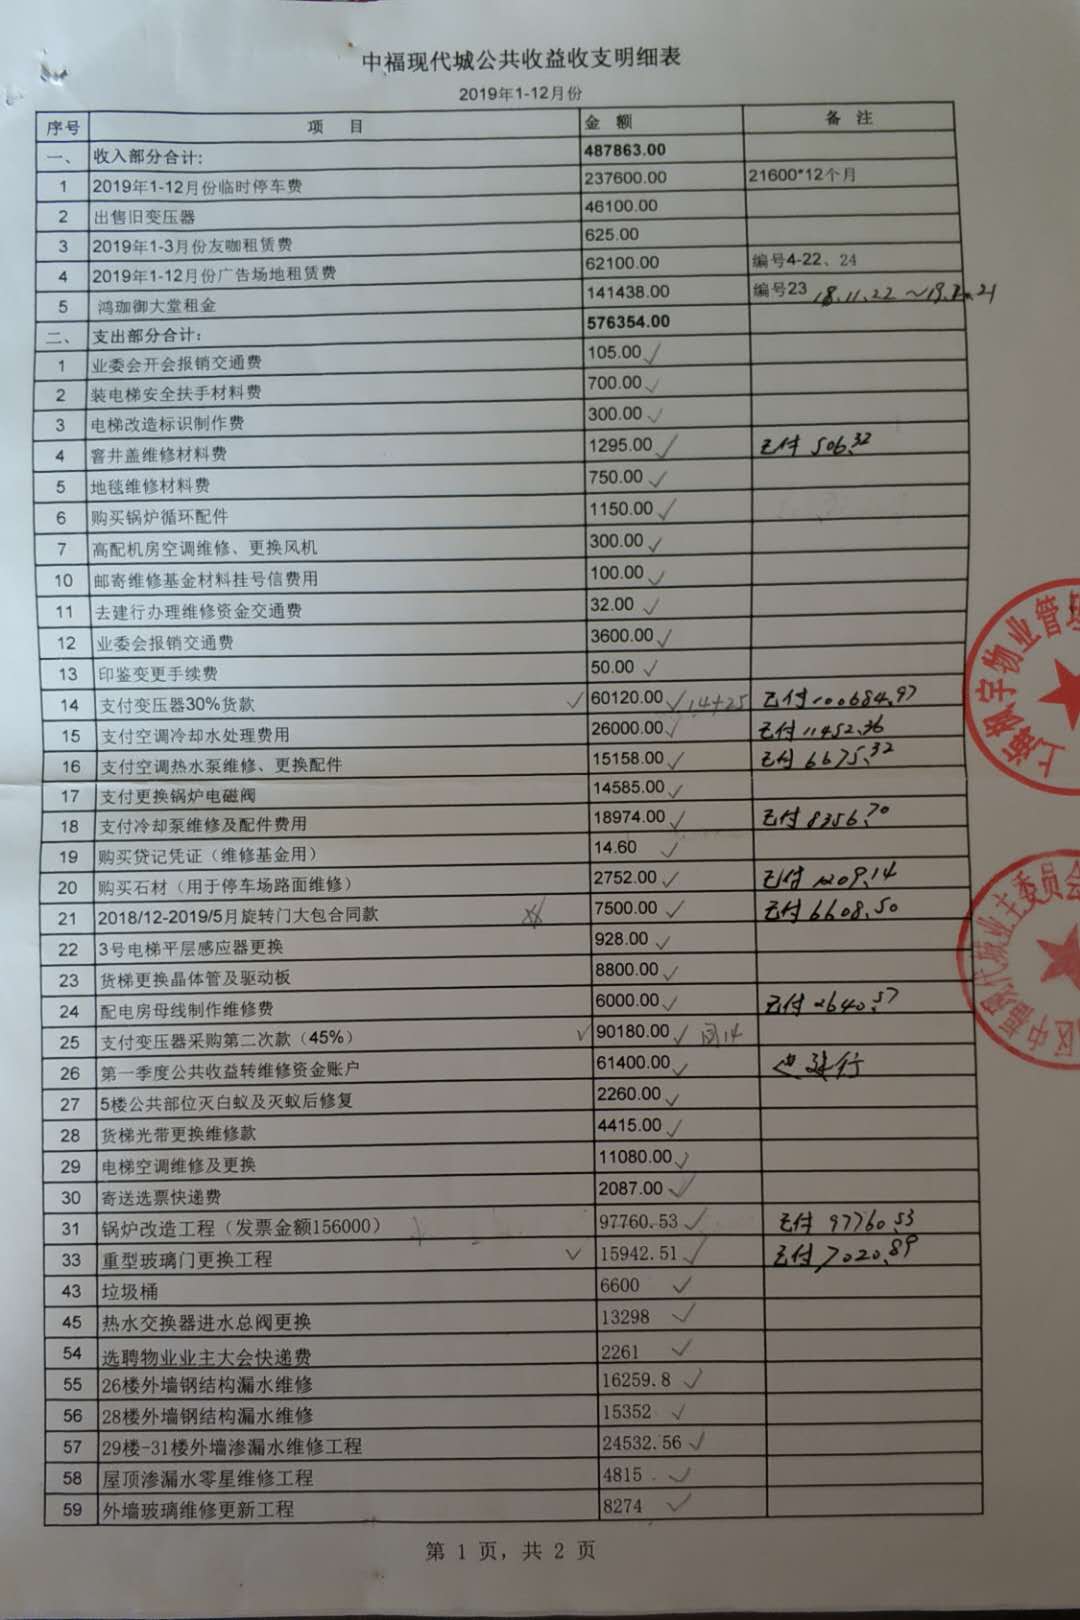 中福现代城公共收益收支明细表
2019年1-12月份
序号 项 目 金 额 备 注
一、 收入部分合计: 487863.00
1 2019年1-12月份临时停车费 237600.00 21600*12个月
2 出售旧变压器 46100.00
3 2019年1-3月份友咖租赁费 625.00
4 2019年1-12月份广告场地租赁费 62100.00 编号4-22、24
5 鸿珈御大堂租金 141438.00 编号23 18.11.22~19.
二、 支出部分合计: 576354.00
1 业委会开会报销交通费 105.00
2 装电梯安全扶手材料费 700.00
3 电梯改造标识制作费 300.00
4 窨井盖维修材料费 1295.00 已付 506.32
5 地毯维修材料费 750.00
6 购买锅炉循环配件 1150.00
7 高配机房空调维修、更换风机 300.00
10 邮寄维修基金材料挂号信费用 100.00
11 去建行办理维修资金交通费 32.00
12 业委会报销交通费 3600.00
13 印鉴变更手续费 50.00
14 支付变压器30%货款 60120.00 14+25 已付100684.97
15 支付空调冷却水处理费用 26000.00 已付11452.36
16 支付空调热水泵维修、更换配件 15158.00 已付6675.32
17 支付更换锅炉电磁阀 14585.00
18 支付冷却泵维修及配件费用 18974.00 已付8356.70
19 购买贷记凭证（维修基金用） 14.60
20 购买石材（用于停车场路面维修） 2752.00 已付1209.14
21 2018/12-2019/5月旋转门大包合同款 7500.00 已付6608.50
22 3号电梯平层感应器更换 928.00
23 货梯更换晶体管及驱动板 8800.00
24 配电房母线制作维修费 6000.00 已付2640.57
25 支付变压器采购第二次款（45%） 90180.00 同14
26 第一季度公共收益转维修资金账户 61400.00 建行
27 5楼公共部位灭白蚁及灭蚁后修复 2260.00
28 货梯光带更换维修款 4415.00
29 电梯空调维修及更换 11080.00
30 寄送选票快递费 2087.00
31 锅炉改造工程（发票金额156000） 97760.53 已付 97760.53
33 重型玻璃门更换工程 15942.51 已付7020.89
43 垃圾桶 6600
45 热水交换器进水总阀更换 13298
54 选聘物业业主大会快递费 2261
55 26楼外墙钢结构漏水维修 16259.8
56 28楼外墙钢结构漏水维修 15352
57 29楼-31楼外墙渗漏水维修工程 24532.56
58 屋顶渗漏水零星维修工程 4815
59 外墙玻璃维修更新工程 8274
第 1 页，共 2 页
物业管理
现代城业主委员会